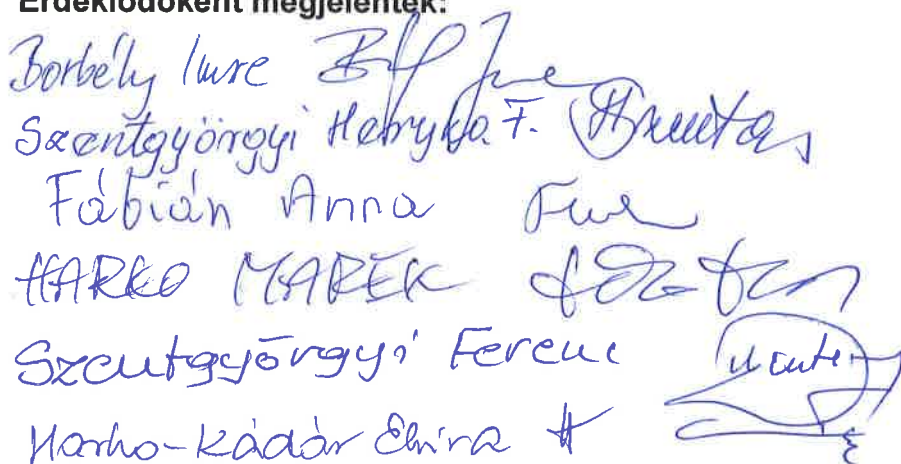 Érdeklődőként megjelentek:
Borbély Imre
Szentgyörgyi Henryka F.
Fábián Anna
HARKO MAREK
Szentgyörgyi Ferenc
Harko-Kádár Elvira